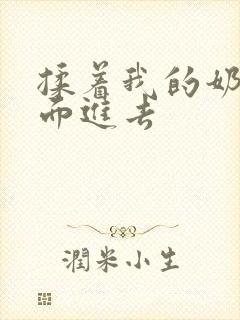 揉着我的奶
而進去
潤米小生